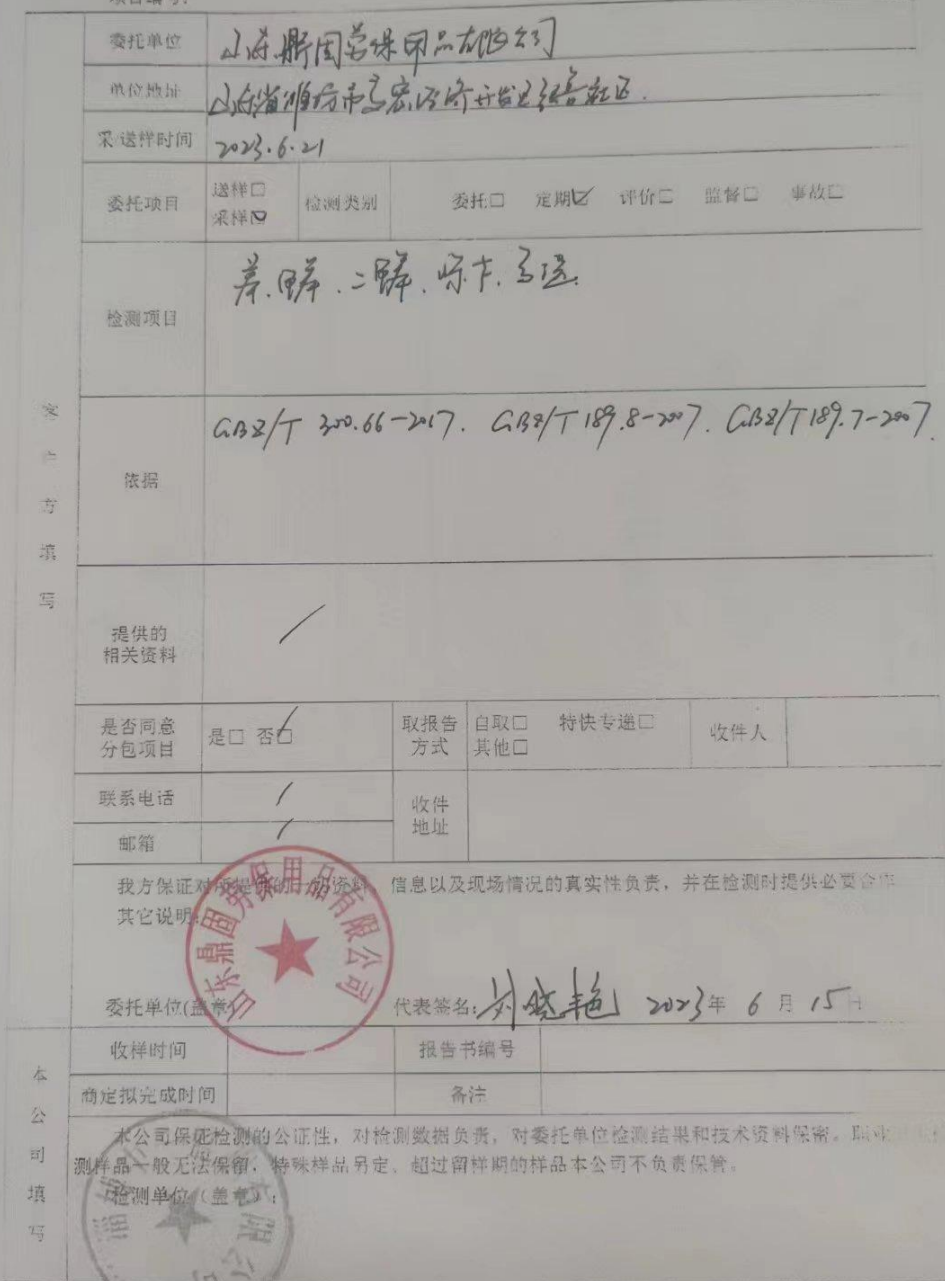 委托单位 山东鼎固劳保用品有限公司
单位地址 山东省潍坊市高密经济开发区
采/送样时间 2023.6.21
委托项目 送样□ 采样☑ 检测类别 委托□ 定期☑ 评价□ 监督□ 事故□
检测项目 苯、甲苯、二甲苯、噪声、高温
依据 GBZ/T 300.66-2017. GBZ/T 189.8-2007. GBZ/T 189.7-2007.
客户方填写
提供的相关资料 /
是否同意分包项目 是□ 否☑ 取报告方式 自取□ 特快专递□ 其他□ 收件人
联系电话 / 收件地址
邮箱 /
我方保证对所提供的一切资料、信息以及现场情况的真实性负责，并在检测时提供必要合作
其它说明：
山东鼎固劳保用品有限公司
委托单位(盖章) 代表签名：刘晓艳 2023年 6月 15日
收样时间 报告书编号
商定拟完成时间 备注
本公司填写
本公司保证检测的公证性，对检测数据负责，对委托单位检测结果和技术资料保密。
测样品一般无法保留，特殊样品另定，超过留样期的样品本公司不负责保管。
检测单位（盖章）：